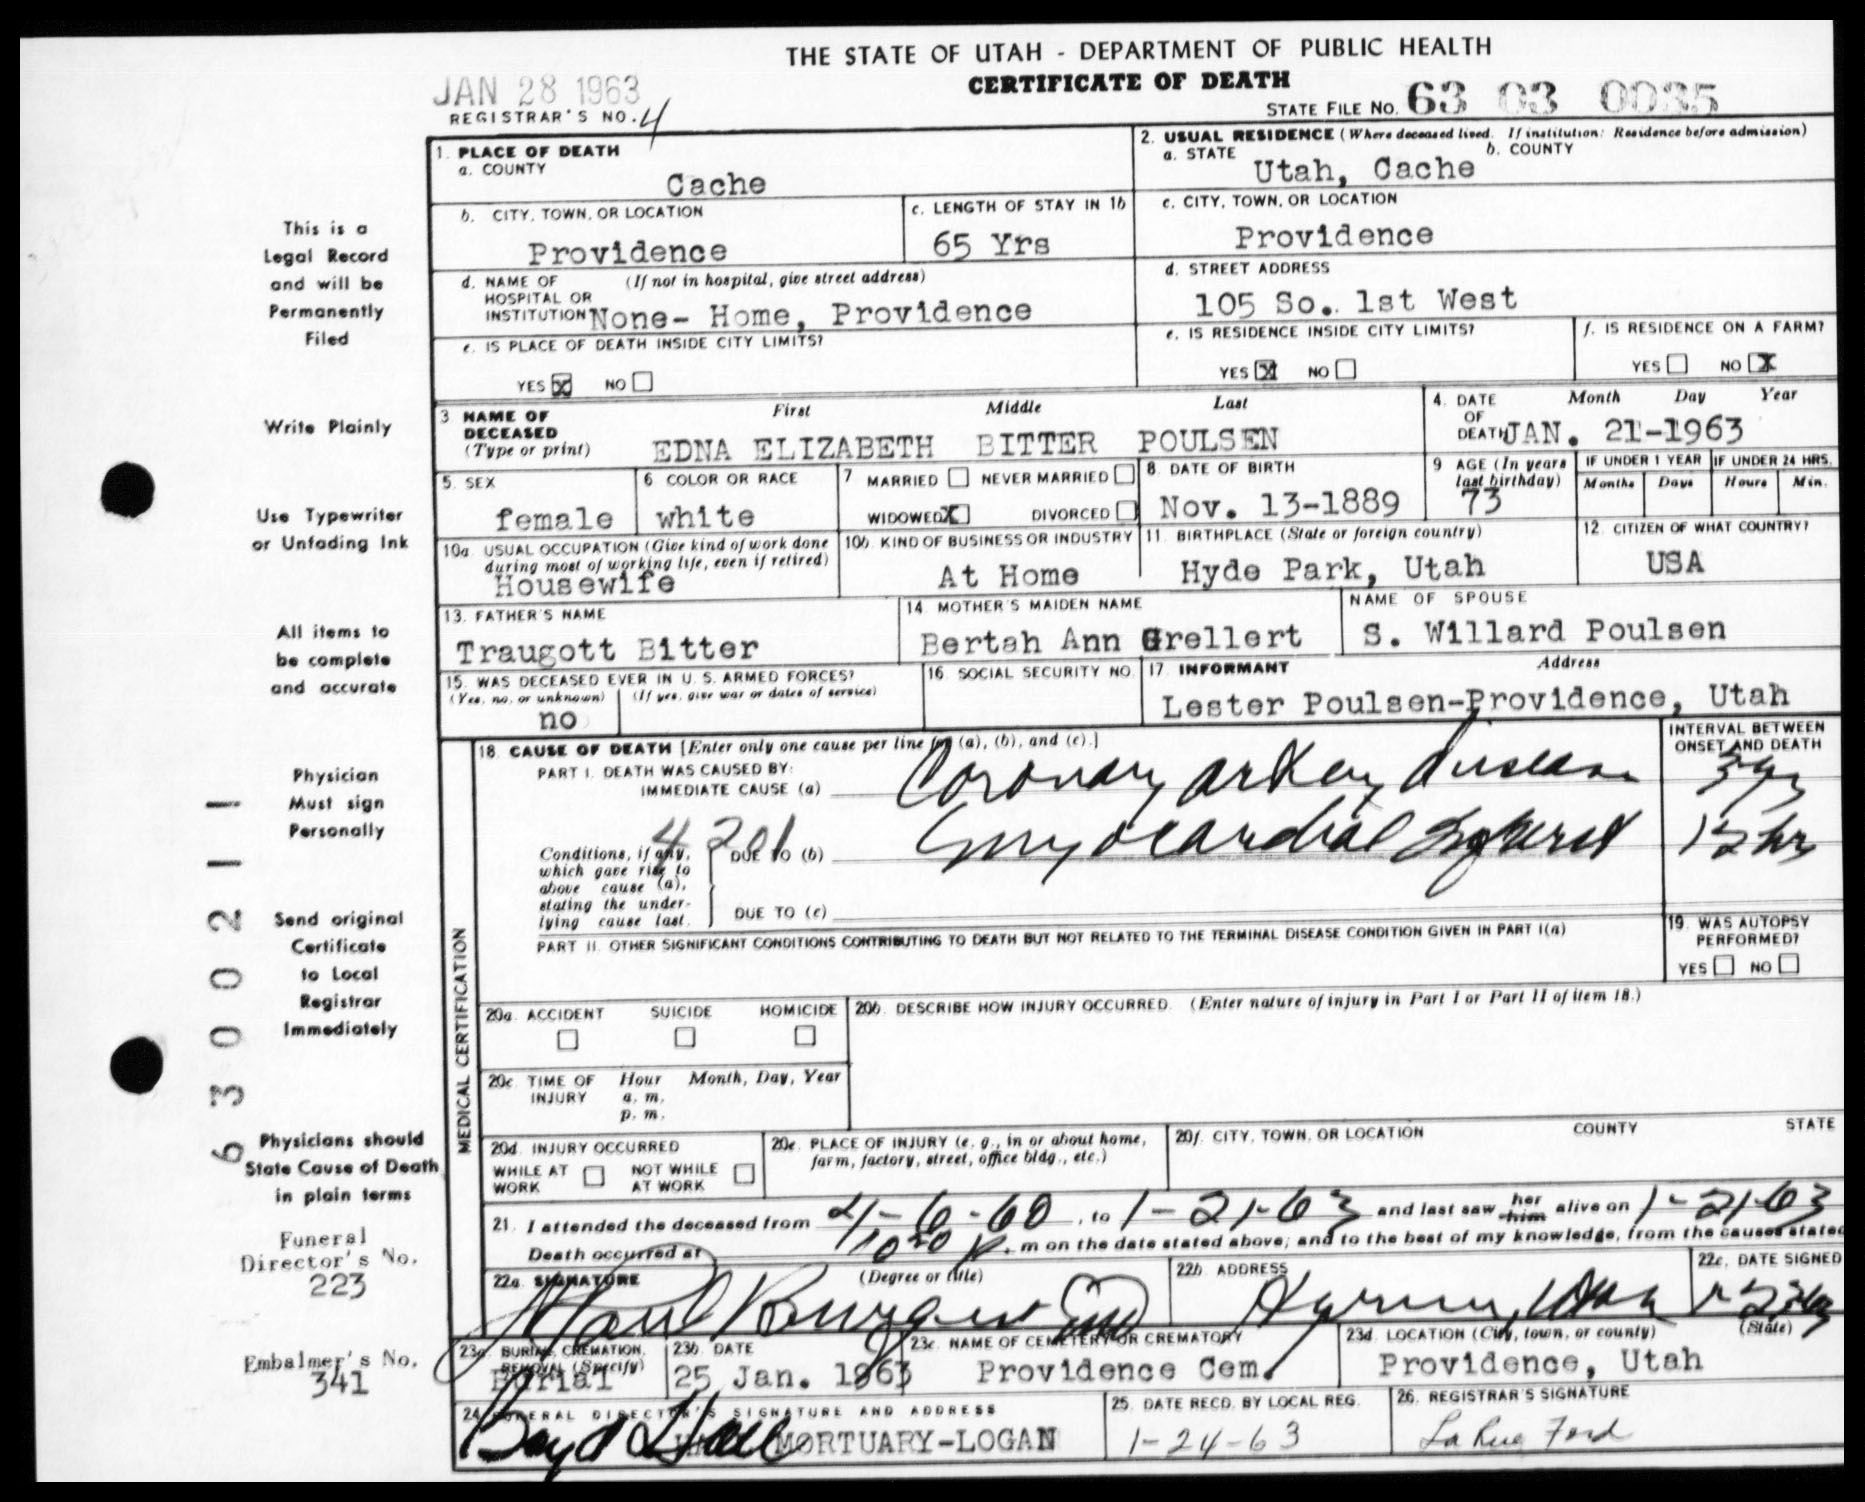 THE STATE OF UTAH - DEPARTMENT OF PUBLIC HEALTH
CERTIFICATE OF DEATH
JAN 28 1963
REGISTRAR'S NO. 4
STATE FILE NO. 63 03 0035
This is a
Legal Record
and will be
Permanently
Filed
Write Plainly
Use Typewriter
or Unfading Ink
All items to
be complete
and accurate
Physician
Must sign
Personally
Send original
Certificate
to Local
Registrar
Immediately
Physicians should
State Cause of Death
in plain terms
Funeral
Director's No.
223
Embalmer's No.
341
6 3 0 0 2 1 1
1. PLACE OF DEATH
a. COUNTY
Cache
2. USUAL RESIDENCE (Where deceased lived. If institution: Residence before admission)
a. STATE b. COUNTY
Utah, Cache
b. CITY, TOWN, OR LOCATION
Providence
c. LENGTH OF STAY IN 1b
65 Yrs
c. CITY, TOWN, OR LOCATION
Providence
d. NAME OF (If not in hospital, give street address)
HOSPITAL OR
INSTITUTION None- Home, Providence
d. STREET ADDRESS
105 So. 1st West
e. IS PLACE OF DEATH INSIDE CITY LIMITS?
YES X NO
e. IS RESIDENCE INSIDE CITY LIMITS?
YES X NO
f. IS RESIDENCE ON A FARM?
YES NO X
3 NAME OF First Middle Last
DECEASED
(Type or print) EDNA ELIZABETH BITTER POULSEN
4. DATE Month Day Year
OF
DEATH JAN. 21-1963
5. SEX
female
6 COLOR OR RACE
white
7 MARRIED NEVER MARRIED
WIDOWED X DIVORCED
8. DATE OF BIRTH
Nov. 13-1889
9 AGE (In years
last birthday)
73
IF UNDER 1 YEAR IF UNDER 24 HRS.
Months Days Hours Min.
10a. USUAL OCCUPATION (Give kind of work done
during most of working life, even if retired)
Housewife
10b. KIND OF BUSINESS OR INDUSTRY
At Home
11. BIRTHPLACE (State or foreign country)
Hyde Park, Utah
12. CITIZEN OF WHAT COUNTRY?
USA
13. FATHER'S NAME
Traugott Bitter
14. MOTHER'S MAIDEN NAME
Bertah Ann Grellert
NAME OF SPOUSE
S. Willard Poulsen
15. WAS DECEASED EVER IN U. S. ARMED FORCES?
(Yes, no, or unknown) (If yes, give war or dates of service)
no
16. SOCIAL SECURITY NO.
17. INFORMANT Address
Lester Poulsen-Providence, Utah
MEDICAL CERTIFICATION
18. CAUSE OF DEATH [Enter only one cause per line for (a), (b), and (c).]
INTERVAL BETWEEN
ONSET AND DEATH
PART I. DEATH WAS CAUSED BY:
IMMEDIATE CAUSE (a) Coronary artery disease 3 yrs
4201
Conditions, if any,
which gave rise to
above cause (a),
stating the under-
lying cause last.
DUE TO (b) myocardial infarct 12 hrs
DUE TO (c)
PART II. OTHER SIGNIFICANT CONDITIONS CONTRIBUTING TO DEATH BUT NOT RELATED TO THE TERMINAL DISEASE CONDITION GIVEN IN PART I(a)
19. WAS AUTOPSY
PERFORMED?
YES NO
20a. ACCIDENT SUICIDE HOMICIDE
20b. DESCRIBE HOW INJURY OCCURRED. (Enter nature of injury in Part I or Part II of item 18.)
20c. TIME OF Hour Month, Day, Year
INJURY a. m.
p. m.
20d. INJURY OCCURRED
WHILE AT NOT WHILE
WORK AT WORK
20e. PLACE OF INJURY (e. g., in or about home,
farm, factory, street, office bldg., etc.)
20f. CITY, TOWN, OR LOCATION COUNTY STATE
21. I attended the deceased from 4-6-60, to 1-21-63 and last saw her him alive on 1-21-63
Death occurred at m on the date stated above; and to the best of my knowledge, from the causes stated
22a. SIGNATURE (Degree or title)
Paul Burgess MD
22b. ADDRESS
Hyrum, Utah
22c. DATE SIGNED
23a. BURIAL, CREMATION,
REMOVAL (Specify)
Burial
23b. DATE
25 Jan. 1963
23c. NAME OF CEMETERY OR CREMATORY
Providence Cem.
23d. LOCATION (City, town, or county) (State)
Providence, Utah
24. FUNERAL DIRECTOR'S SIGNATURE AND ADDRESS
Boyd Hall MORTUARY-LOGAN
25. DATE RECD. BY LOCAL REG.
1-24-63
26. REGISTRAR'S SIGNATURE
La Rue Ford